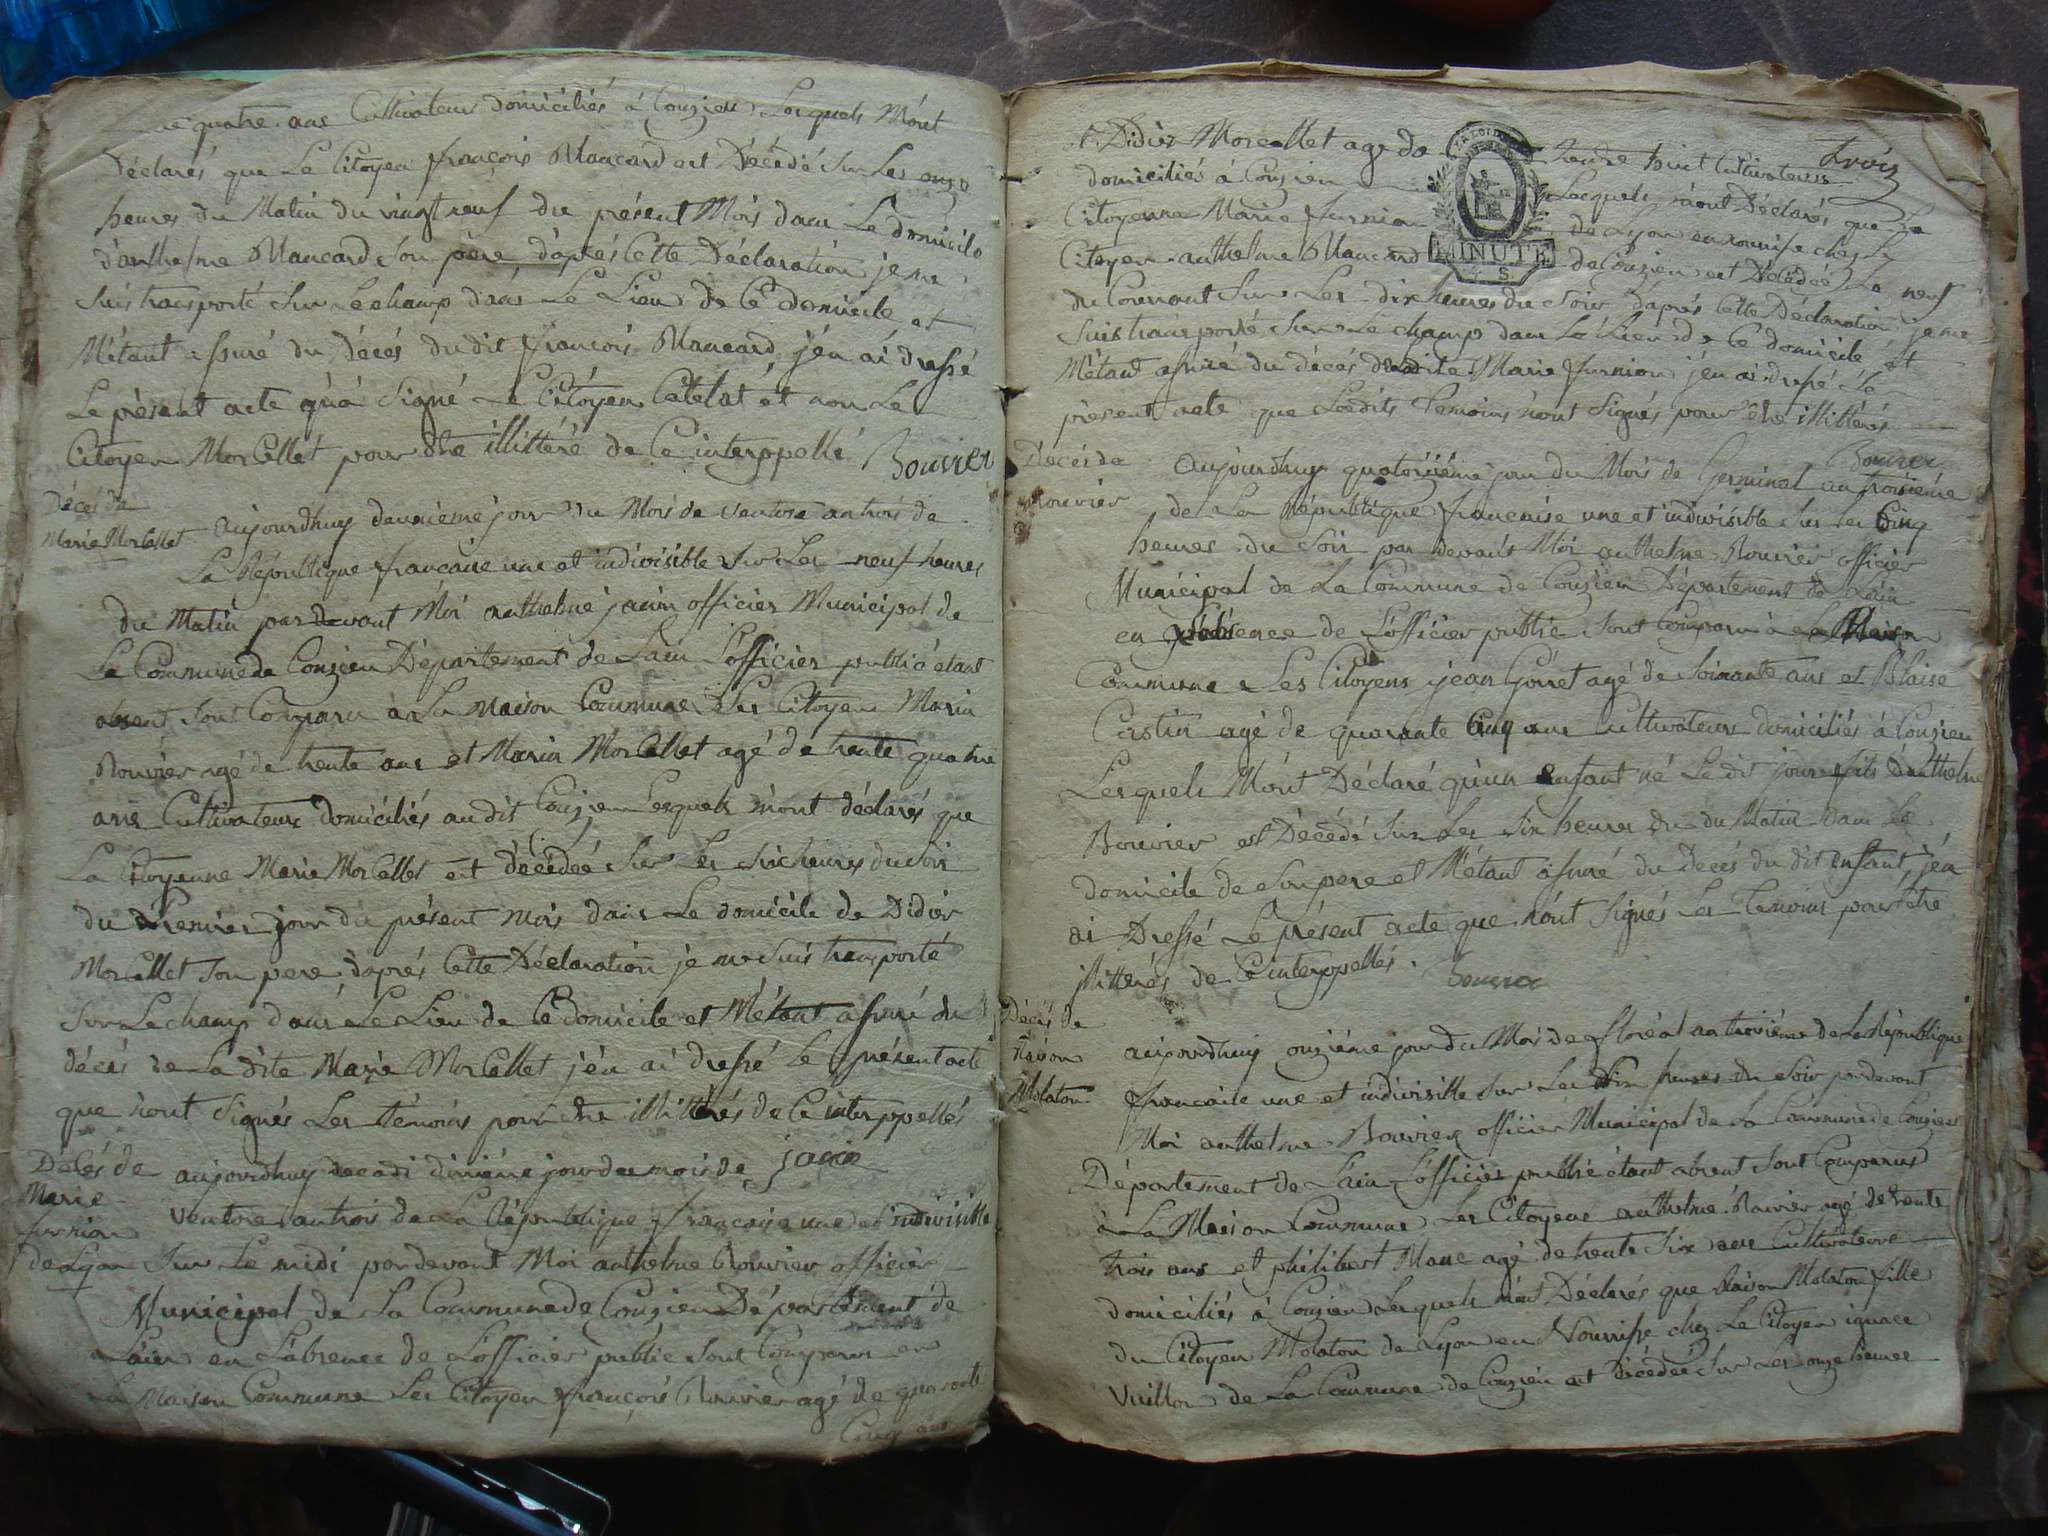 quatre ans Cultivateurs domiciliés à Conzieu Lesquels M'ont
Déclarés que Le Citoyen françois Mancard est Décédé Sur Les onze
heures du Matin du vingt neuf du présent Mois dans Le domicile
d'anthelme Mancard Son père d'après Cette Déclaration je me
Suis transporté Sur Le champ dans Le Lieu de Ce domicile et
M'étant assuré du décés dudit françois Mancard j'en ai dressé
Le présent acte qu'a Signé Le Citoyen Catelat et non Le
Citoyen Morcellet pour être illittéré de Ce interppellé Bouvier
Décés de
Marie Morcellet
aujourdhuy deuxieme jour du Mois de ventose an trois de
La République francaise une et indivisible Sur Les neuf heures
du Matin pardevant Moi anthelme janin officier Municipal de
La Commune de Conzieu Département de L'ain L'officier public étant
absent Sont Comparu à La Maison Commune Les Citoyen Marin
Bouvier agé de trente ans et Marin Morcellet agé de trente quatre
ans Cultivateurs domiciliés au dit Conzieu Lesquels m'ont déclarés que
La Citoyenne Marie Morcellet est décédée Sur Les Six heures du soir
du Premier jour du présent mois dans Le domicile de Didier
Morcellet Son pere, d'après Cette Déclaration je me Suis transporté
Sur Le champ dans Le Lieu de Ce domicile et M'étant assuré du
décés de La dite Marie Morcellet j'en ai dressé Le présent acte
que n'ont Signés Les témoins pour être illittérés de Ce interppellés
janin
Décés de
Marie
furnion
de Lyon
aujourdhuy decadi dixiéme jour du mois de
ventose an trois de La République francaise une et indivisible
Sur Le midi pardevant Moi anthelme Bouvier officier
Municipal de La Commune de Conzieu Département de
L'ain en L'absence de L'officier public Sont Comparus en
La Maison Commune Les Citoyen françois Bouvier agé de quarante
Cinq ans
trois
et Didier Morcellet agé de trente huit Cultivateurs
MINUTE
domiciliés à Conzieu Lesquels m'ont Déclarés que La
Citoyenne Marie furnion de Lyon en nourrisse chez Le
Citoyen anthelme Mancard de Conzieu est Décédée Le neuf
du Courrant Sur Les dix heures du Soir d'après Cette Déclaration je me
Suis transporté Sur Le champ dans Le Lieu de Ce domicile et
M'étant assuré du décés de Marie furnion j'en ai dressé Le
présent acte que Lesdits temoins n'ont Signés pour être illittérés
Bouvier
Décés de
Bouvier
aujourdhuy quatorziéme jour du Mois de Germinal an troisiéme
de La République francaise une et indivisible Sur Les Cinq
heures du Soir par devant Moi anthelme Bouvier officier
Municipal de La Commune de Conzieu Département de L'ain
en L'absence de L'officier public Sont Comparu à La Maison
Commune Les Citoyens jean Goiret agé de Soixante ans et Blaise
Castin agé de quarante Cinq ans Cultivateurs domiciliés à Conzieu
Lesquels M'ont Déclaré qu'un enfant né Le dit jour fils d'anthelme
Bouvier est Décédé Sur Les Six heures du du Matin dans Le
domicile de Son pere et M'étant assuré du Decés du dit enfant, j'en
ai Dressé Le présent acte que n'ont Signés Les Temoins pour être
illittérés de Ce interppellés. Bouvier
Décés de
Molaton
aujourdhuy onziéme jour du Mois de floréal an troisiéme de La République
francaise une et indivisible Sur Les Six heures du Soir pardevant
Moi anthelme Bouvier officier Municipal de La Commune de Conzieu
Département de L'ain L'officier public étant absent Sont Comparus
à La Maison Commune Les Citoyens anthelme Bouvier agé de trente
trois ans et philibert agé de trente Six ans Cultivateurs
domiciliés à Conzieu Lesquels m'ont Déclarés que Molaton fille
du Citoyen Molaton de Lyon en Nourrisse chez Le Citoyen ignace
Vuillon de La Commune de Conzieu est Décédée Sur Les onze heures